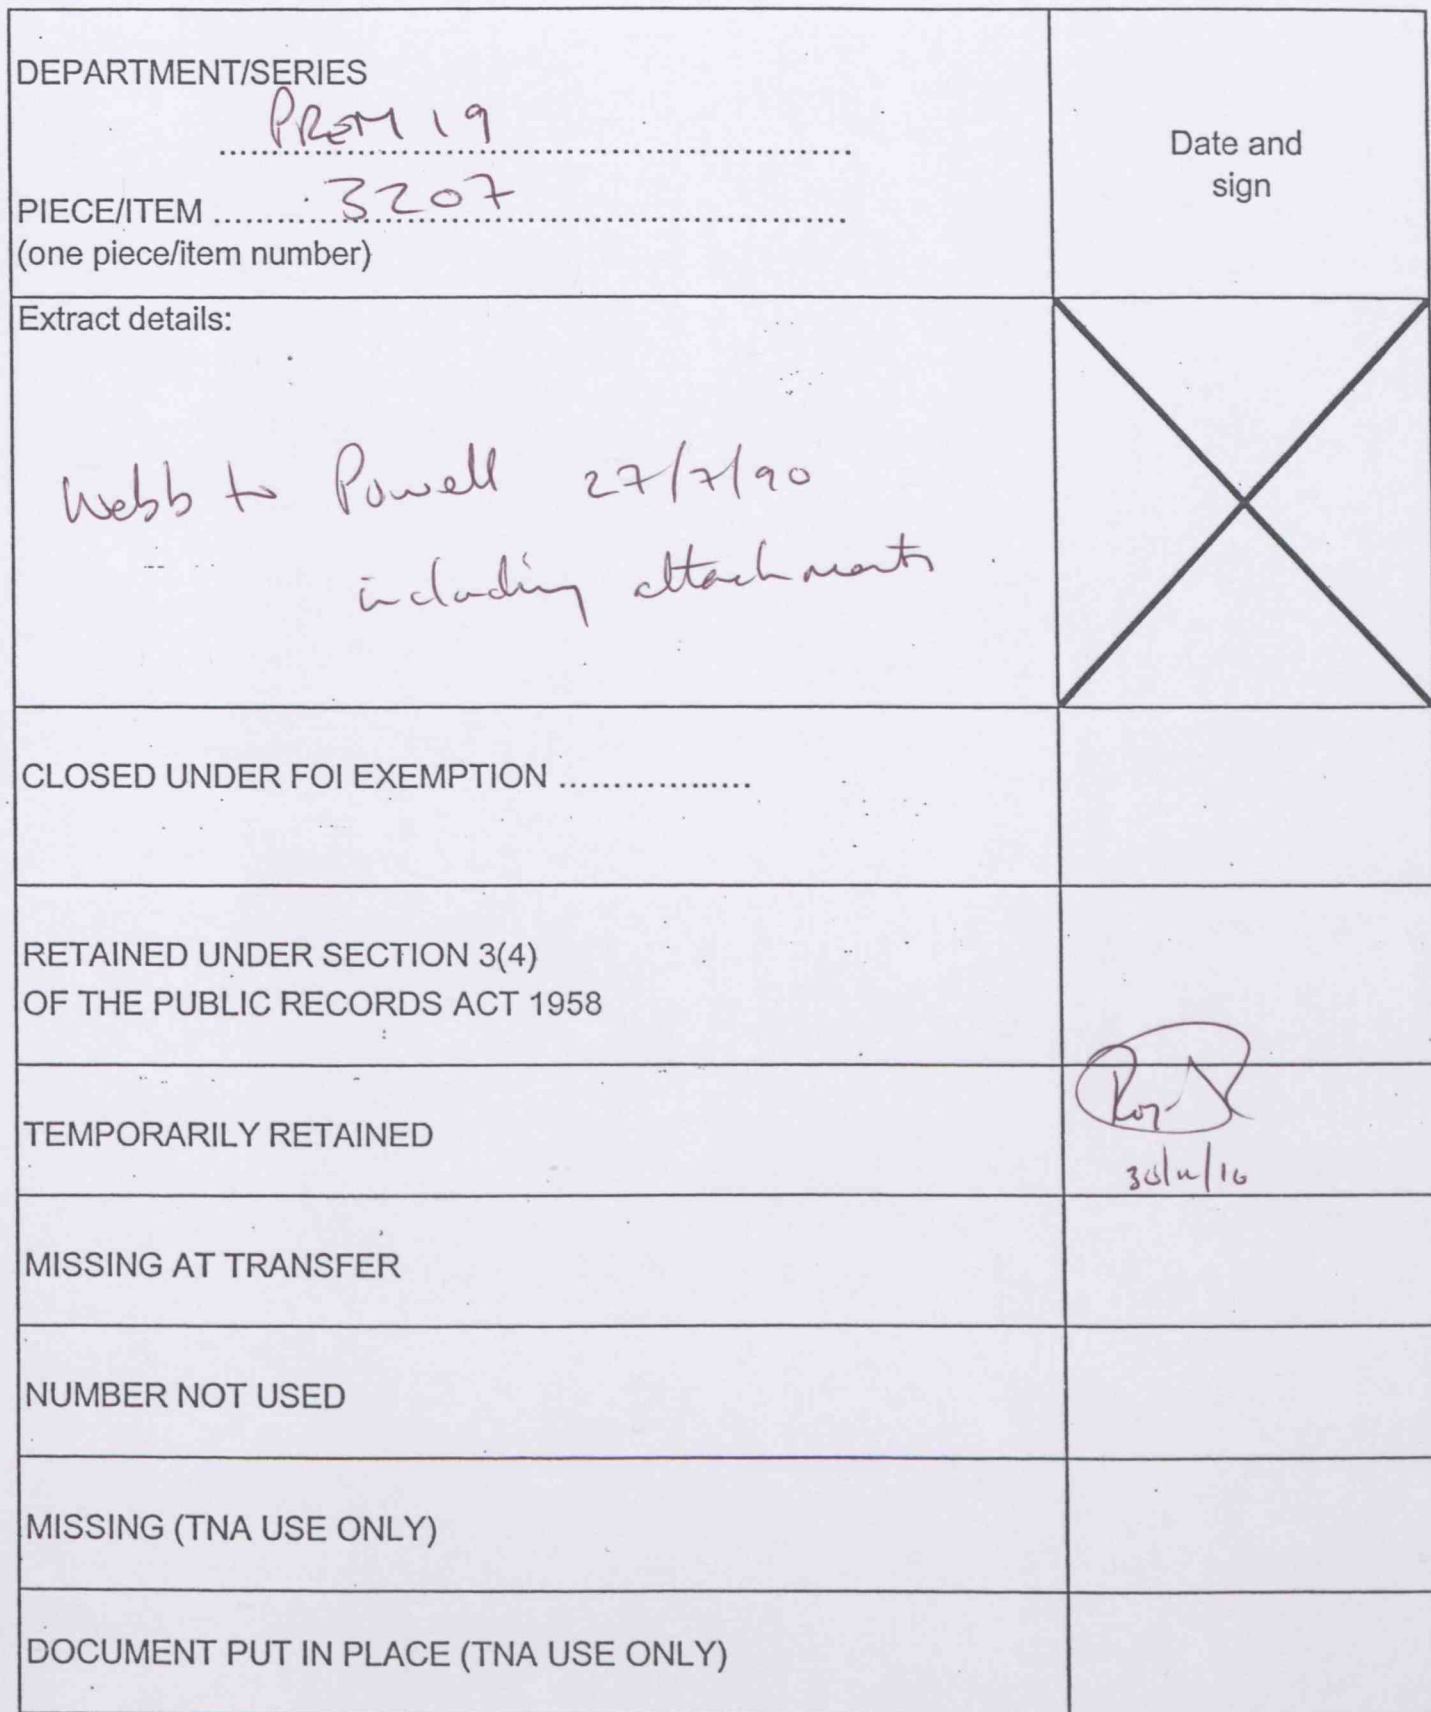 DEPARTMENT/SERIES
PREM 19
Date and
sign
PIECE/ITEM ........ 3207 ........
(one piece/item number)
Extract details:
Webb to Powell 27/7/90
including attachments
CLOSED UNDER FOI EXEMPTION ..................
RETAINED UNDER SECTION 3(4)
OF THE PUBLIC RECORDS ACT 1958
TEMPORARILY RETAINED
MISSING AT TRANSFER
NUMBER NOT USED
MISSING (TNA USE ONLY)
DOCUMENT PUT IN PLACE (TNA USE ONLY)